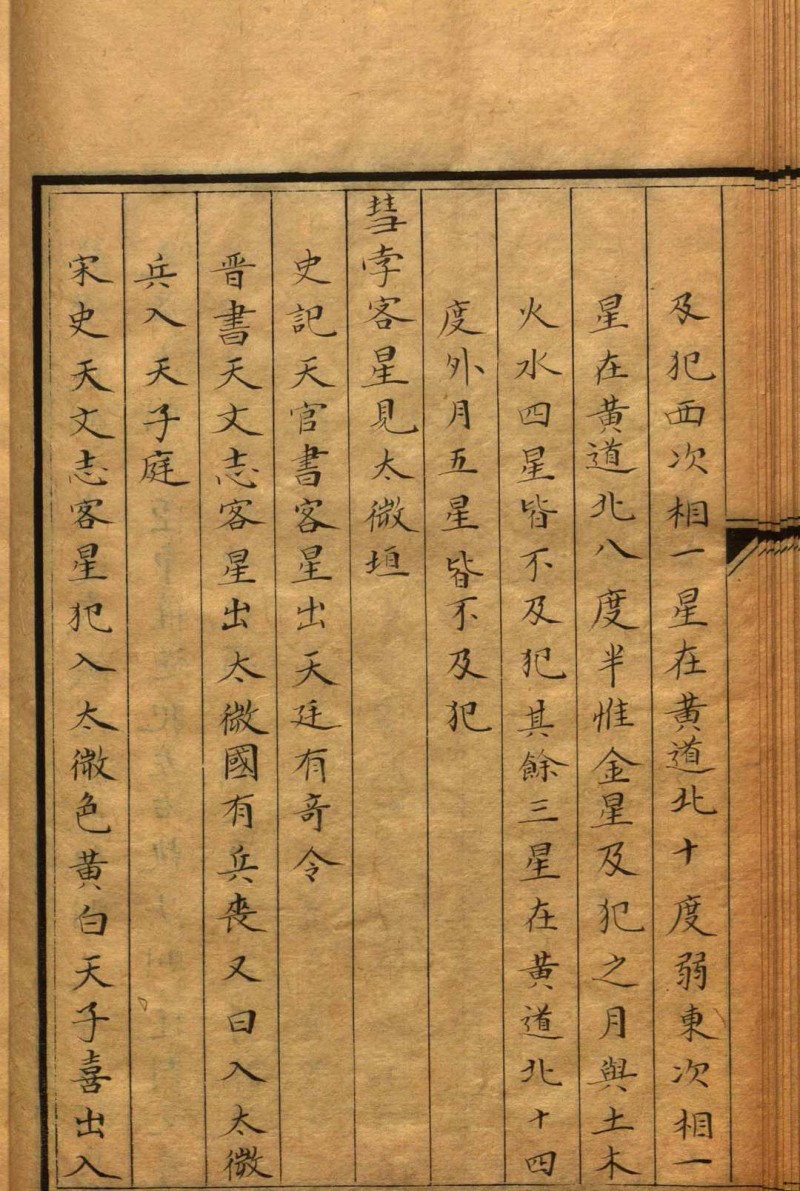 及犯西次相一星在黃道北十度弱東次相一
星在黃道北八度半惟金星及犯之月與土木
火水四星皆不及犯其餘三星在黃道北十四
度外月五星皆不及犯
彗孛客星見太微垣
史記天官書客星出天廷有奇令
晉書天文志客星出太微國有兵喪又曰入太微
兵入天子庭
宋史天文志客星犯入太微色黃白天子喜出入